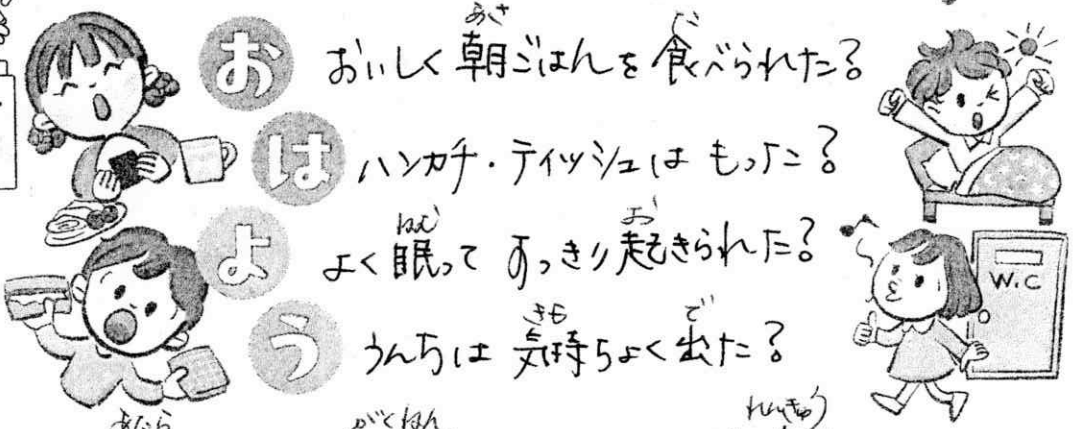 お おいしく朝ごはんを食べられた?
は ハンカチ・ティッシュは もった?
よ よく眠って すっきり起きられた?
う うんちは 気持ちよく出た?
W.C
あさ
た
ねむ
お
きも
で
がくねん
れんきゅう